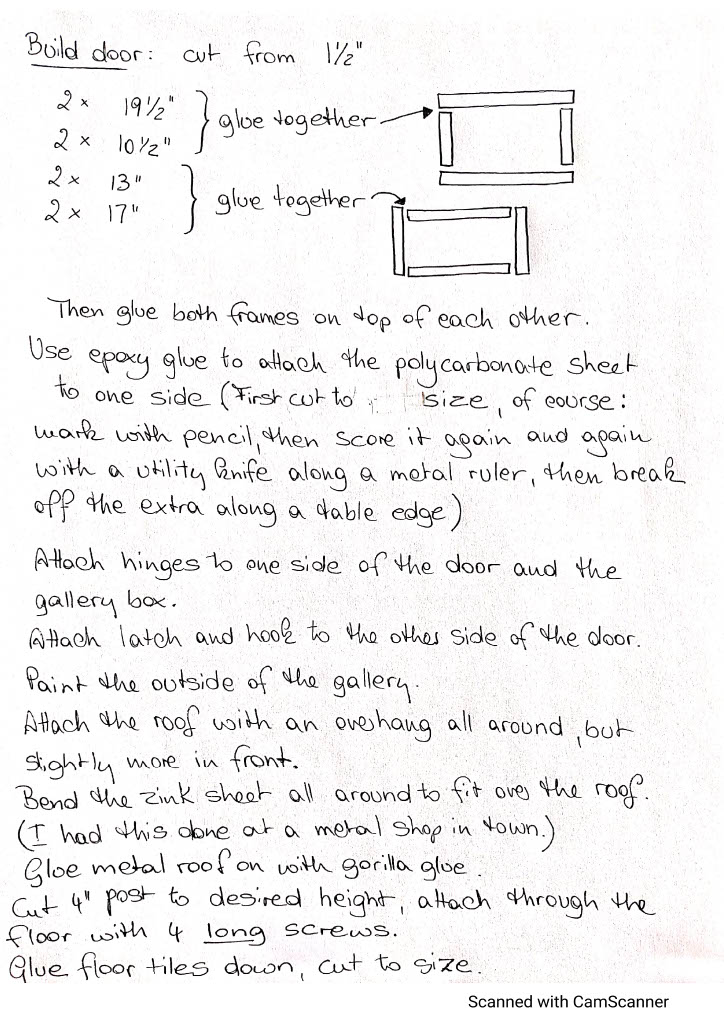 Build door: cut from 1½"
2 x 19½"
2 x 10½"
glue together
2 x 13"
2 x 17"
glue together
Then glue both frames on top of each other.
Use epoxy glue to attach the polycarbonate sheet
to one side (First cut to size, of course:
mark with pencil, then score it again and again
with a utility knife along a metal ruler, then break
off the extra along a table edge)
Attach hinges to one side of the door and the
gallery box.
Attach latch and hook to the other side of the door.
Paint the outside of the gallery.
Attach the roof with an overhang all around, but
slightly more in front.
Bend the zink sheet all around to fit over the roof.
(I had this done at a metal shop in town.)
Glue metal roof on with gorilla glue.
Cut 4" post to desired height, attach through the
floor with 4 long screws.
Glue floor tiles down, cut to size.
Scanned with CamScanner